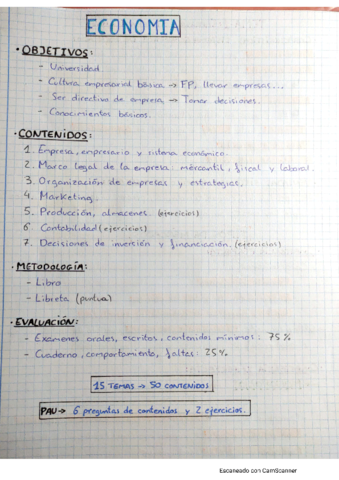 ECONOMIA
· OBJETIVOS:
- Universidad.
- Cultura empresarial básica → FP, llevar empresas...
- Ser directivo de empresa → Tomar decisiones.
- Conocimientos básicos.
· CONTENIDOS:
1. Empresa, empresario y sistema económico.
2. Marco legal de la empresa mercantil, fiscal y laboral.
3. Organización de empresas y estrategias.
4. Marketing.
5. Producción, almacenes. (ejercicios)
6. Contabilidad (ejercicios)
7. Decisiones de inversión y financiación. (ejercicios)
· METODOLOGÍA:
- Libro
- Libreta (puntua)
· EVALUACIÓN:
- Exámenes orales, escritos, contenidos mínimos: 75%
- Cuaderno, comportamiento, faltas: 25%
15 TEMAS → 50 CONTENIDOS
PAU → 6 preguntas de contenidos y 2 ejercicios.
Escaneado con CamScanner